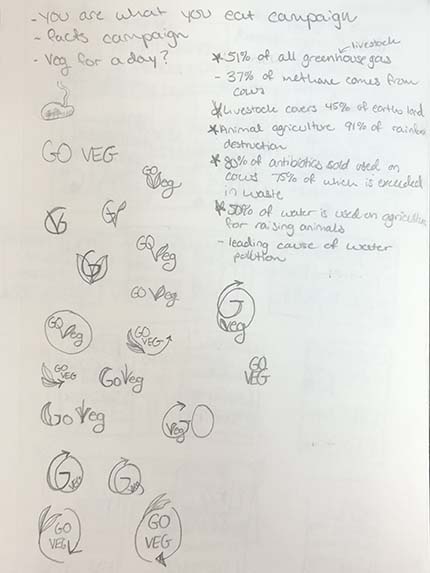 - You are what you eat campaign
- facts campaign
- Veg for a day?
livestock
* 51% of all greenhouse gas
- 37% of methane comes from
cows
* Livestock covers 45% of earths land
* Animal agriculture 91% of rainforest
destruction
* 80% of antibiotics sold used on
cows 75% of which is exceeded
in waste
* 50% of water is used on agriculture
for raising animals
- leading cause of water
pollution
GO VEG
GO Veg
G
GO Veg
GO Veg
G Veg
GO Veg
GO VEG
GO VEG
Go Veg
GO VEG
Go Veg
Veg GO
G veg
G veg
GO VEG
GO VEG